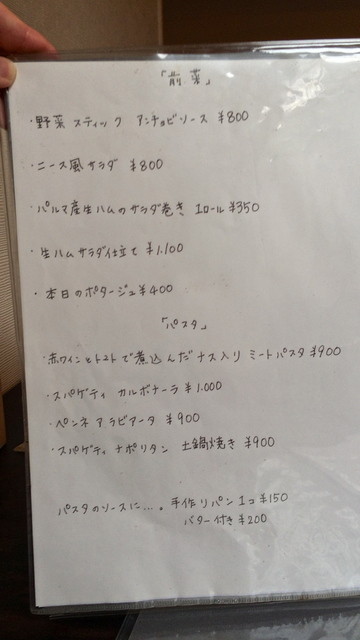 「前菜」
・野菜 スティック アンチョビソース ¥800
・ニース風サラダ ¥800
・パルマ産生ハムのサラダ巻き 1ロール ¥350
・生ハムサラダ仕立て ¥1.100
・本日のポタージュ ¥400
「パスタ」
・赤ワインとトマトで煮込んだナス入り ミートパスタ ¥900
・スパゲティ カルボナーラ ¥1.000
・ペンネ アラビアータ ¥900
・スパゲティ ナポリタン 土鍋焼き ¥900
パスタのソースに…。手作りパン 1コ ¥150
バター付き ¥200